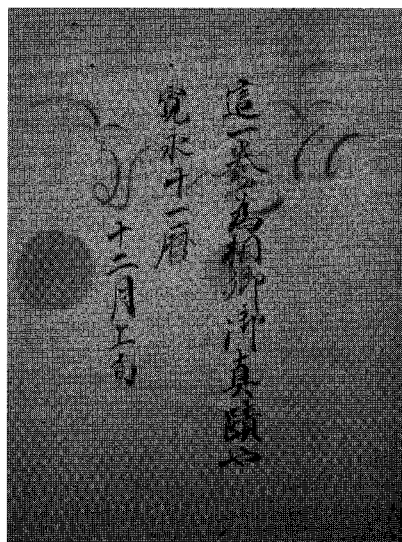 這一巻為相卿御真蹟也
寛永十一暦
十二月上旬